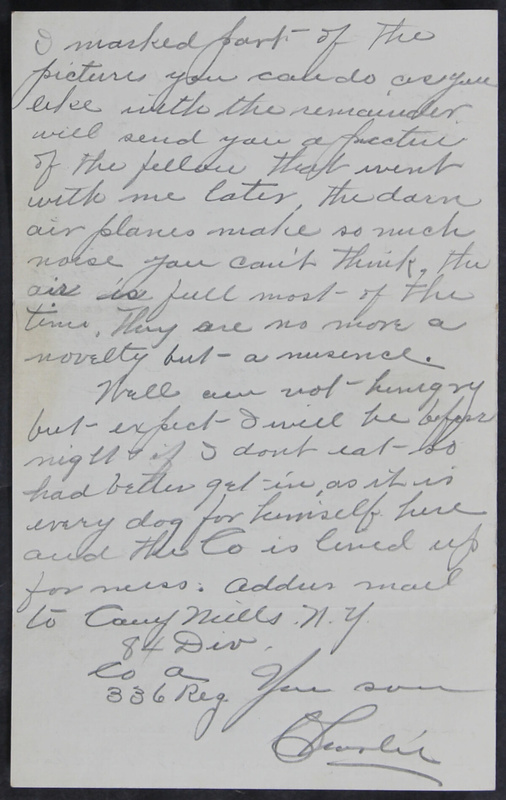 I marked part of the
pictures you can do as you
like with the remainder
will send you a picture
of the fellow that went
with me later, the darn
air planes make so much
noise you can't think, the
air is full most of the
time. They are no more a
novelty but a nusence.
Well am not hungry
but expect I will be before
night if I dont eat so
had better get in, as it is
every dog for himself here
and the Co is lined up
for mess. Address mail
to Camp Mills. N.Y.
84 Div.
Co A
336 Reg. Your son
Charlie